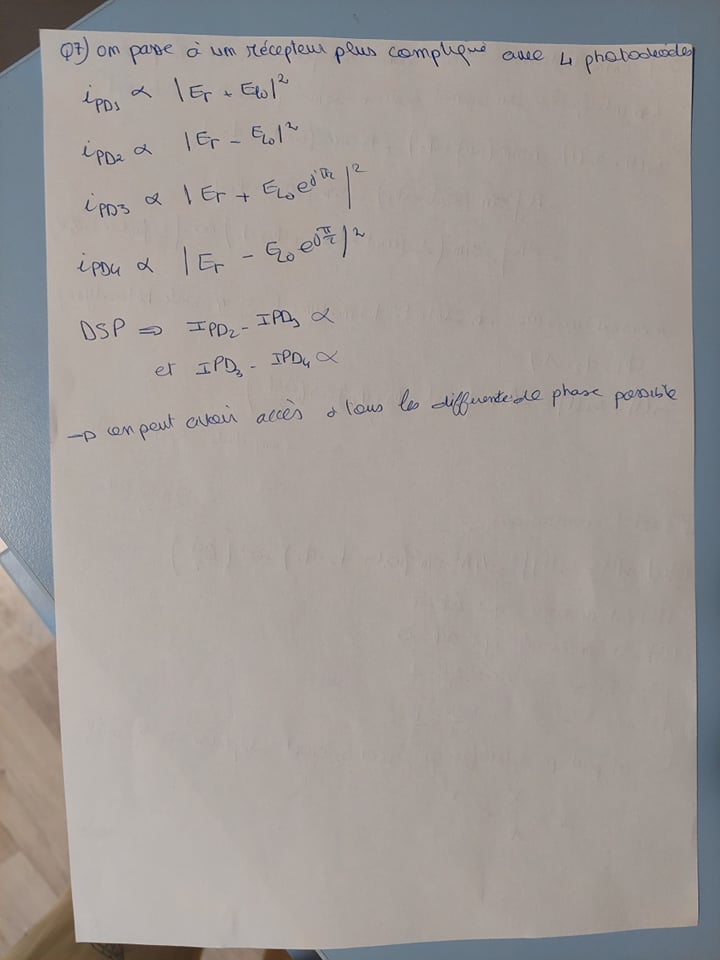 Q7) on passe à un récepteur plus compliqué avec 4 photodiodes
i_PD1 ∝ |Er + ELo|²
i_PD2 ∝ |Er - ELo|²
i_PD3 ∝ |Er + ELo e^jπ/2|²
i_PD4 ∝ |Er - ELo e^jπ/2|²
DSP ⇒ IPD2 - IPD1 ∝
et IPD3 - IPD4 ∝
→ on peut avoir accès à tous les differente de phase possible